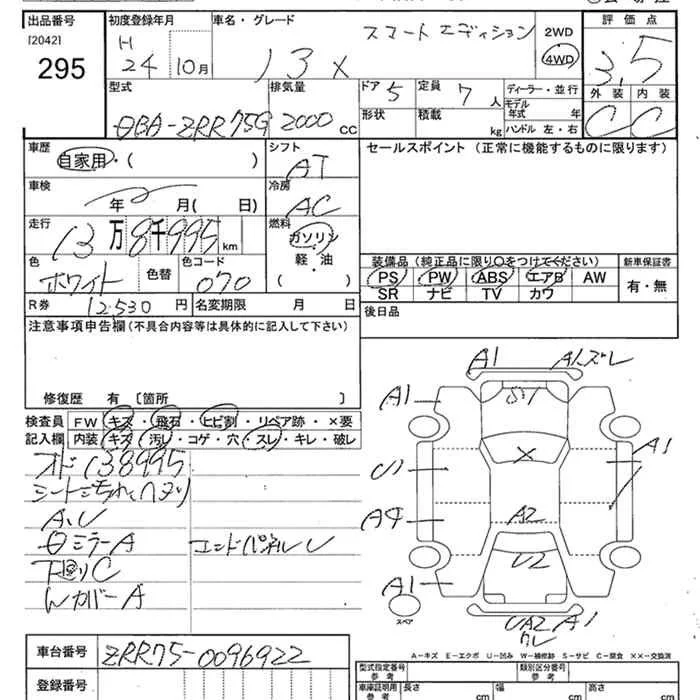 出品番号
[2042]
295
初度登録年月
H
24年 10月
車名・グレード
スマートエディション
13 X
2WD
4WD
評価点
3.5
外装 内装
C C
型式
DBA-ZRR75G
排気量
2000 CC
ドア 5
形状
定員 7 人
積載 kg
ディーラー・並行
モデル年式 年
ハンドル 左・右
車歴
自家用 ( )
シフト
AT
車検
年 月( 日)
冷房
AC
走行
13万8千995km
燃料
ガソリン
軽・油
( )
色
ホワイト
色替
色コード
070
R券 12,530 円
名変期限 月 日
セールスポイント (正常に機能するものに限ります)
装備品 (純正品に限り〇をつけてください)
PS PW ABS エアB AW
SR ナビ TV カワ
新車保証書
有・無
後日品
注意事項申告欄 (不具合内容等は具体的に記入して下さい)
修復歴 有 〔箇所 〕
検査員記入欄
FW キズ・飛石・ヒビ割・リペア跡・×要
内装 キズ・汚レ・コゲ・穴・スレ・キレ・破レ
オド138995
シートヨゴレ、ヘタリ
A、U
ミラーA
エンドパネルU
下回りC
WカバーA
A1 A1ズレ
A1
U1
A4
A1
A1
X
A2
U2
UA2 A1
ワレ
スペア
A-キズ E-エクボ U-凹み W-補修跡 S-サビ C-腐食 ××-交換済
車台番号
ZRR75-0096922
登録番号
型式指定番号
参考
類別区分番号
参考
車庫証明用
参考
長さ cm
幅 cm
高さ cm